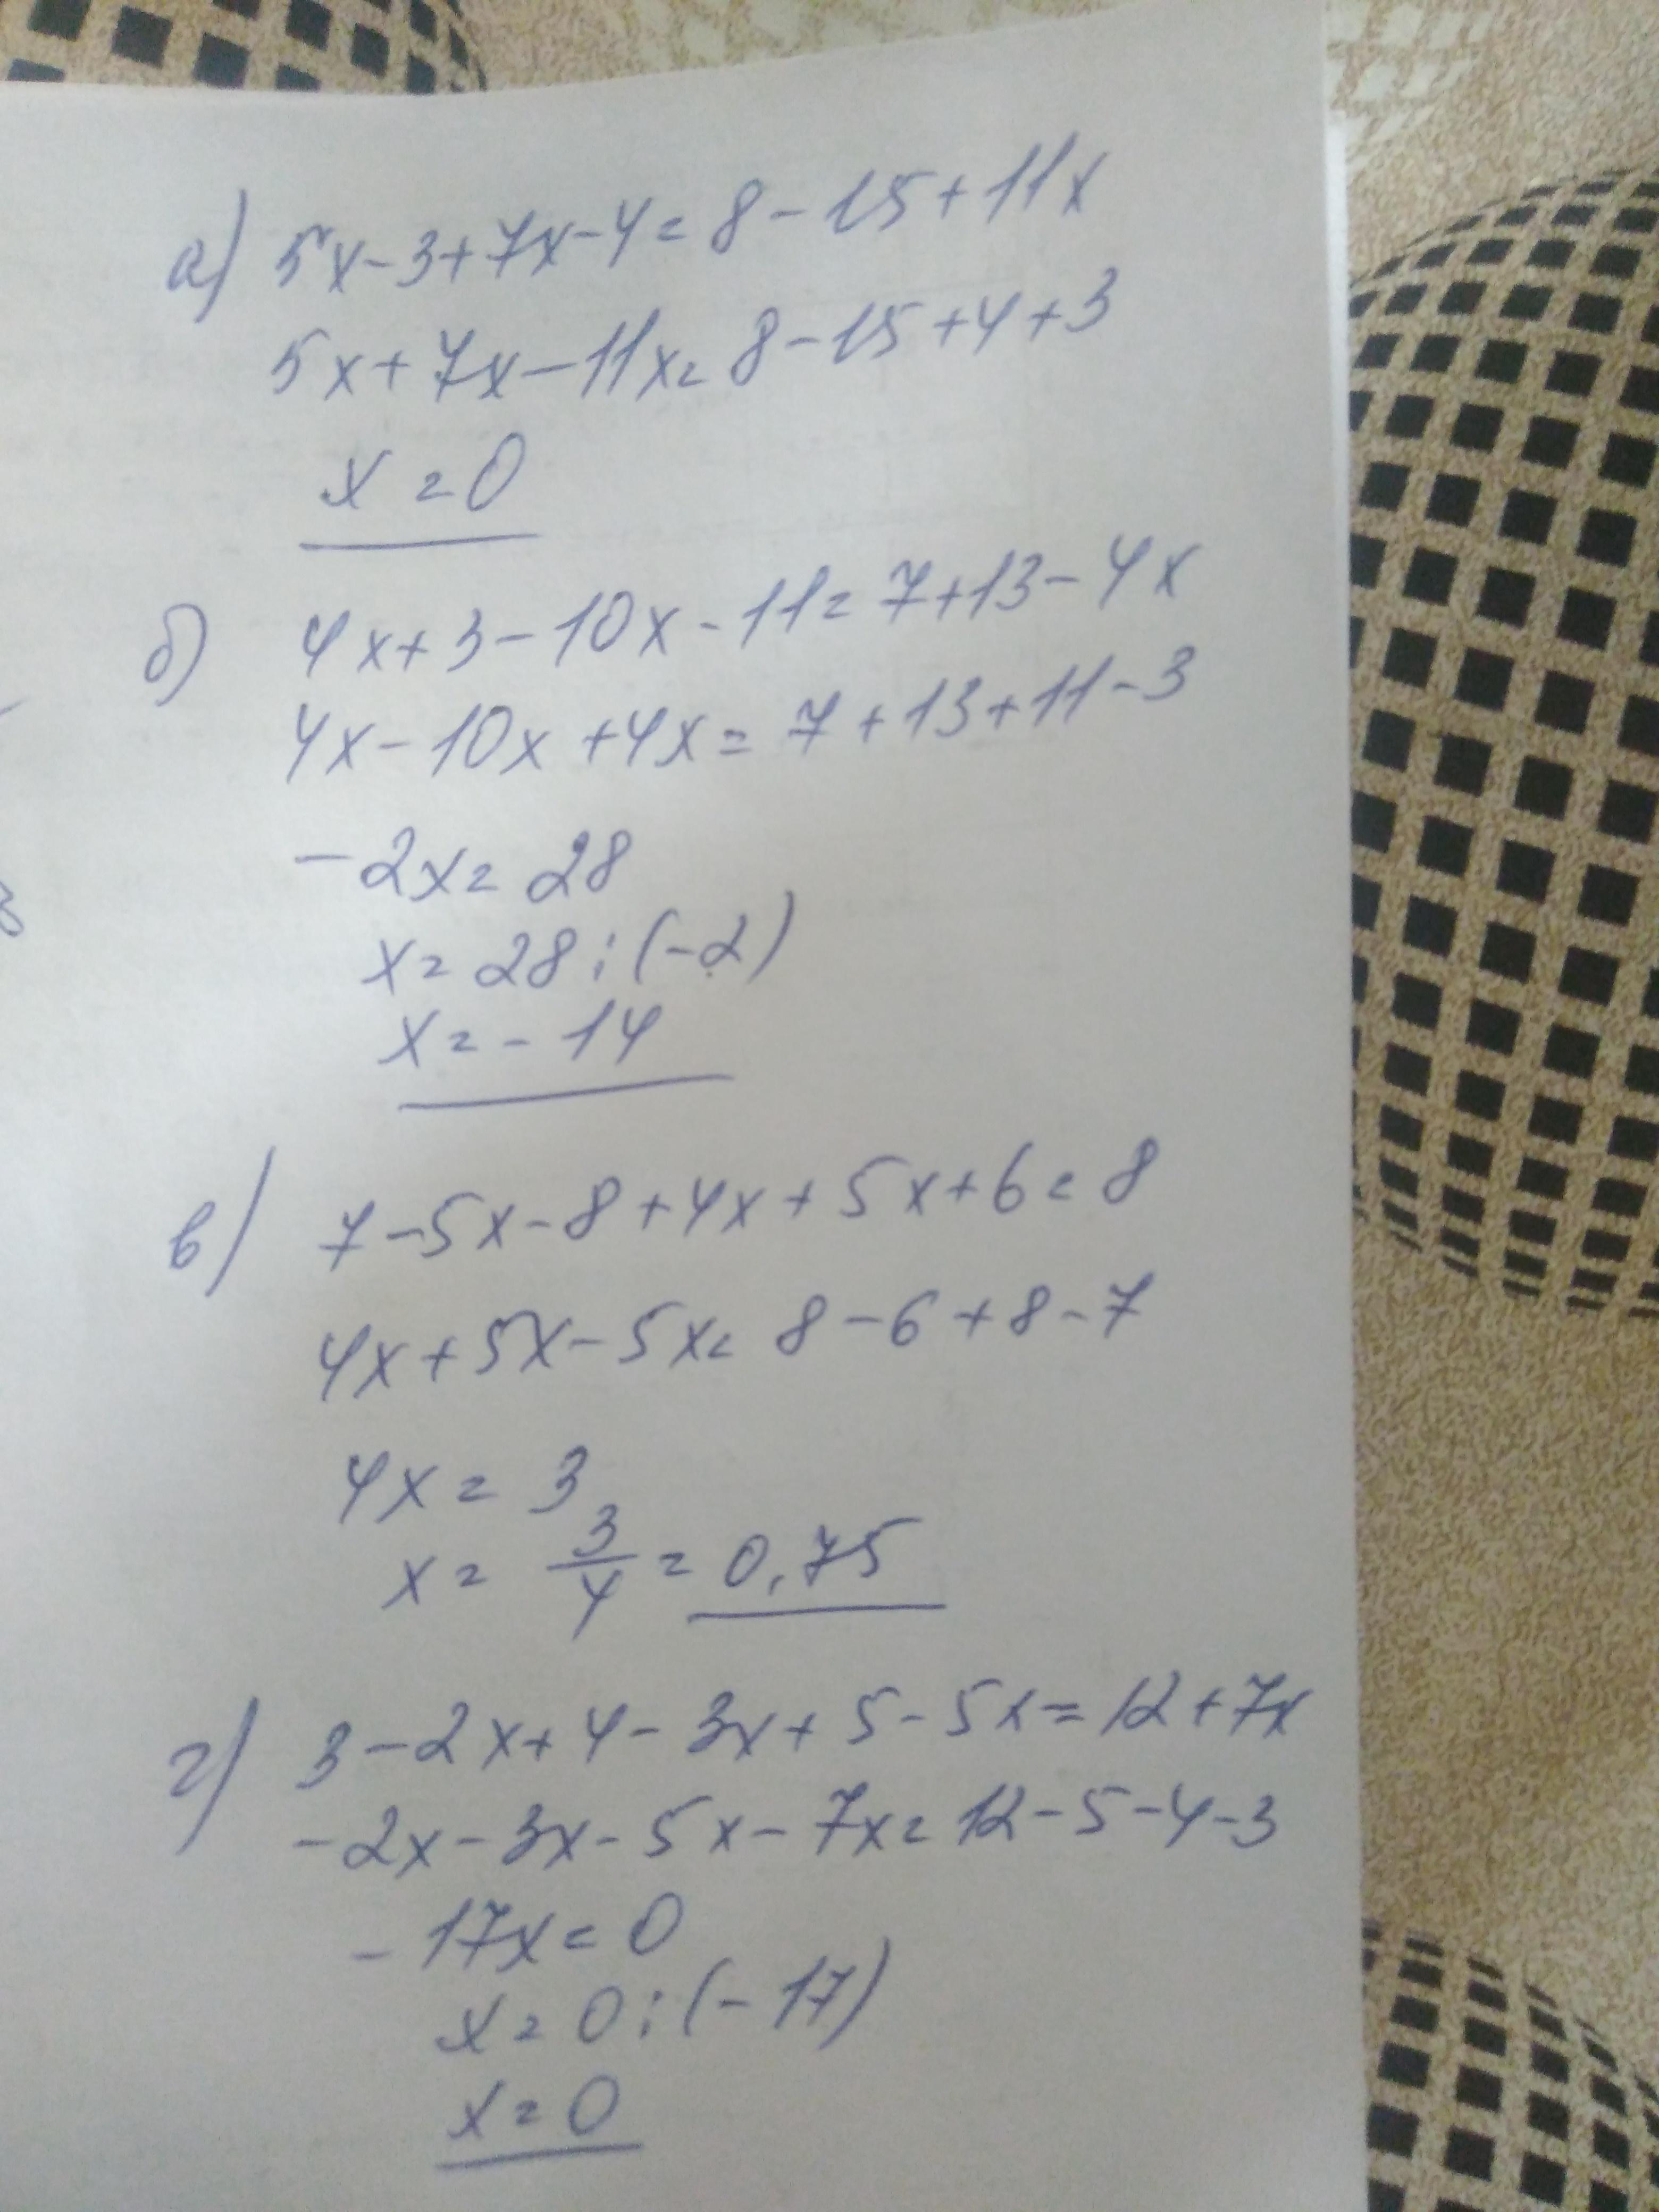 а) 5x-3+7x-4=8-15+11x
5x+7x-11x=8-15+4+3
x=0
б) 4x+3-10x-11=7+13-4x
4x-10x+4x=7+13+11-3
-2x=28
x=28:(-2)
x=-14
в) 7-5x-8+4x+5x+6=8
4x+5x-5x=8-6+8-7
4x=3
x=3/4=0,75
г) 3-2x+4-3x+5-5x=12+7x
-2x-3x-5x-7x=12-5-4-3
-17x=0
x=0:(-17)
x=0